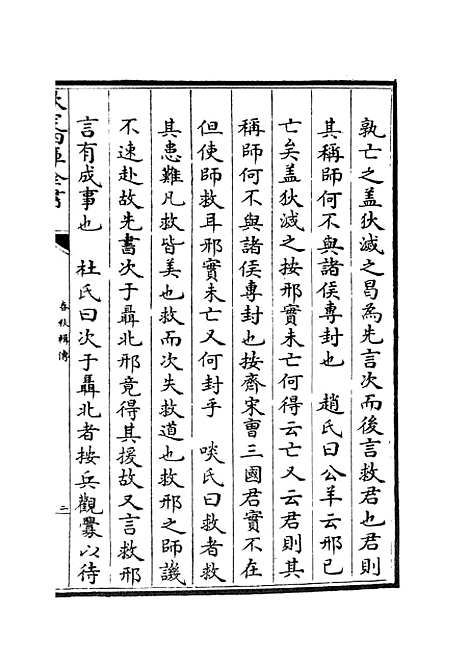 孰亡之盖狄滅之曷爲先言次而後言救君也君則
其稱師何不與諸侯専封也　趙氏曰公羊云邢已
亡矣盖狄滅之按邢實未亡何得云亡又云君則其
稱師何不與諸侯専封也按齊宋曹三國君實不在
但使師救耳邢實未亡又何封乎　啖氏曰救者救
其患難凡救皆美也救而次失救道也救邢之師譏
不速赴故先書次于聶北邢竟得其援故又言救邢
言有成事也　杜氏曰次于聶北者按兵觀釁以待
欽定四庫全書
春秋輯傳
二